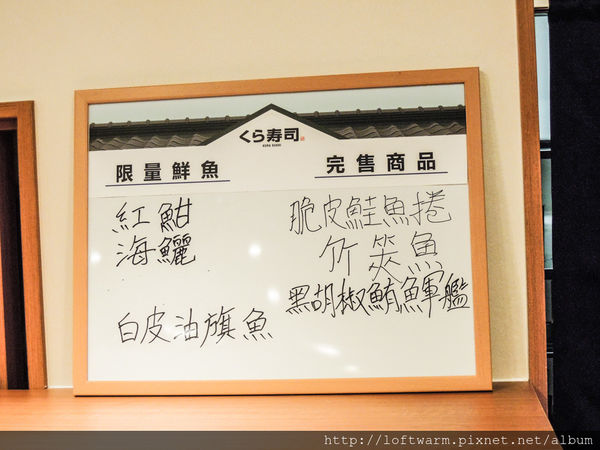 くら寿司
KURA SUSHI
限量鮮魚
完售商品
紅魽
海鱺
白皮油旗魚
脆皮鮭魚捲
竹筴魚
黑胡椒鮪魚軍艦
http://loftwarm.pixnet.net/album